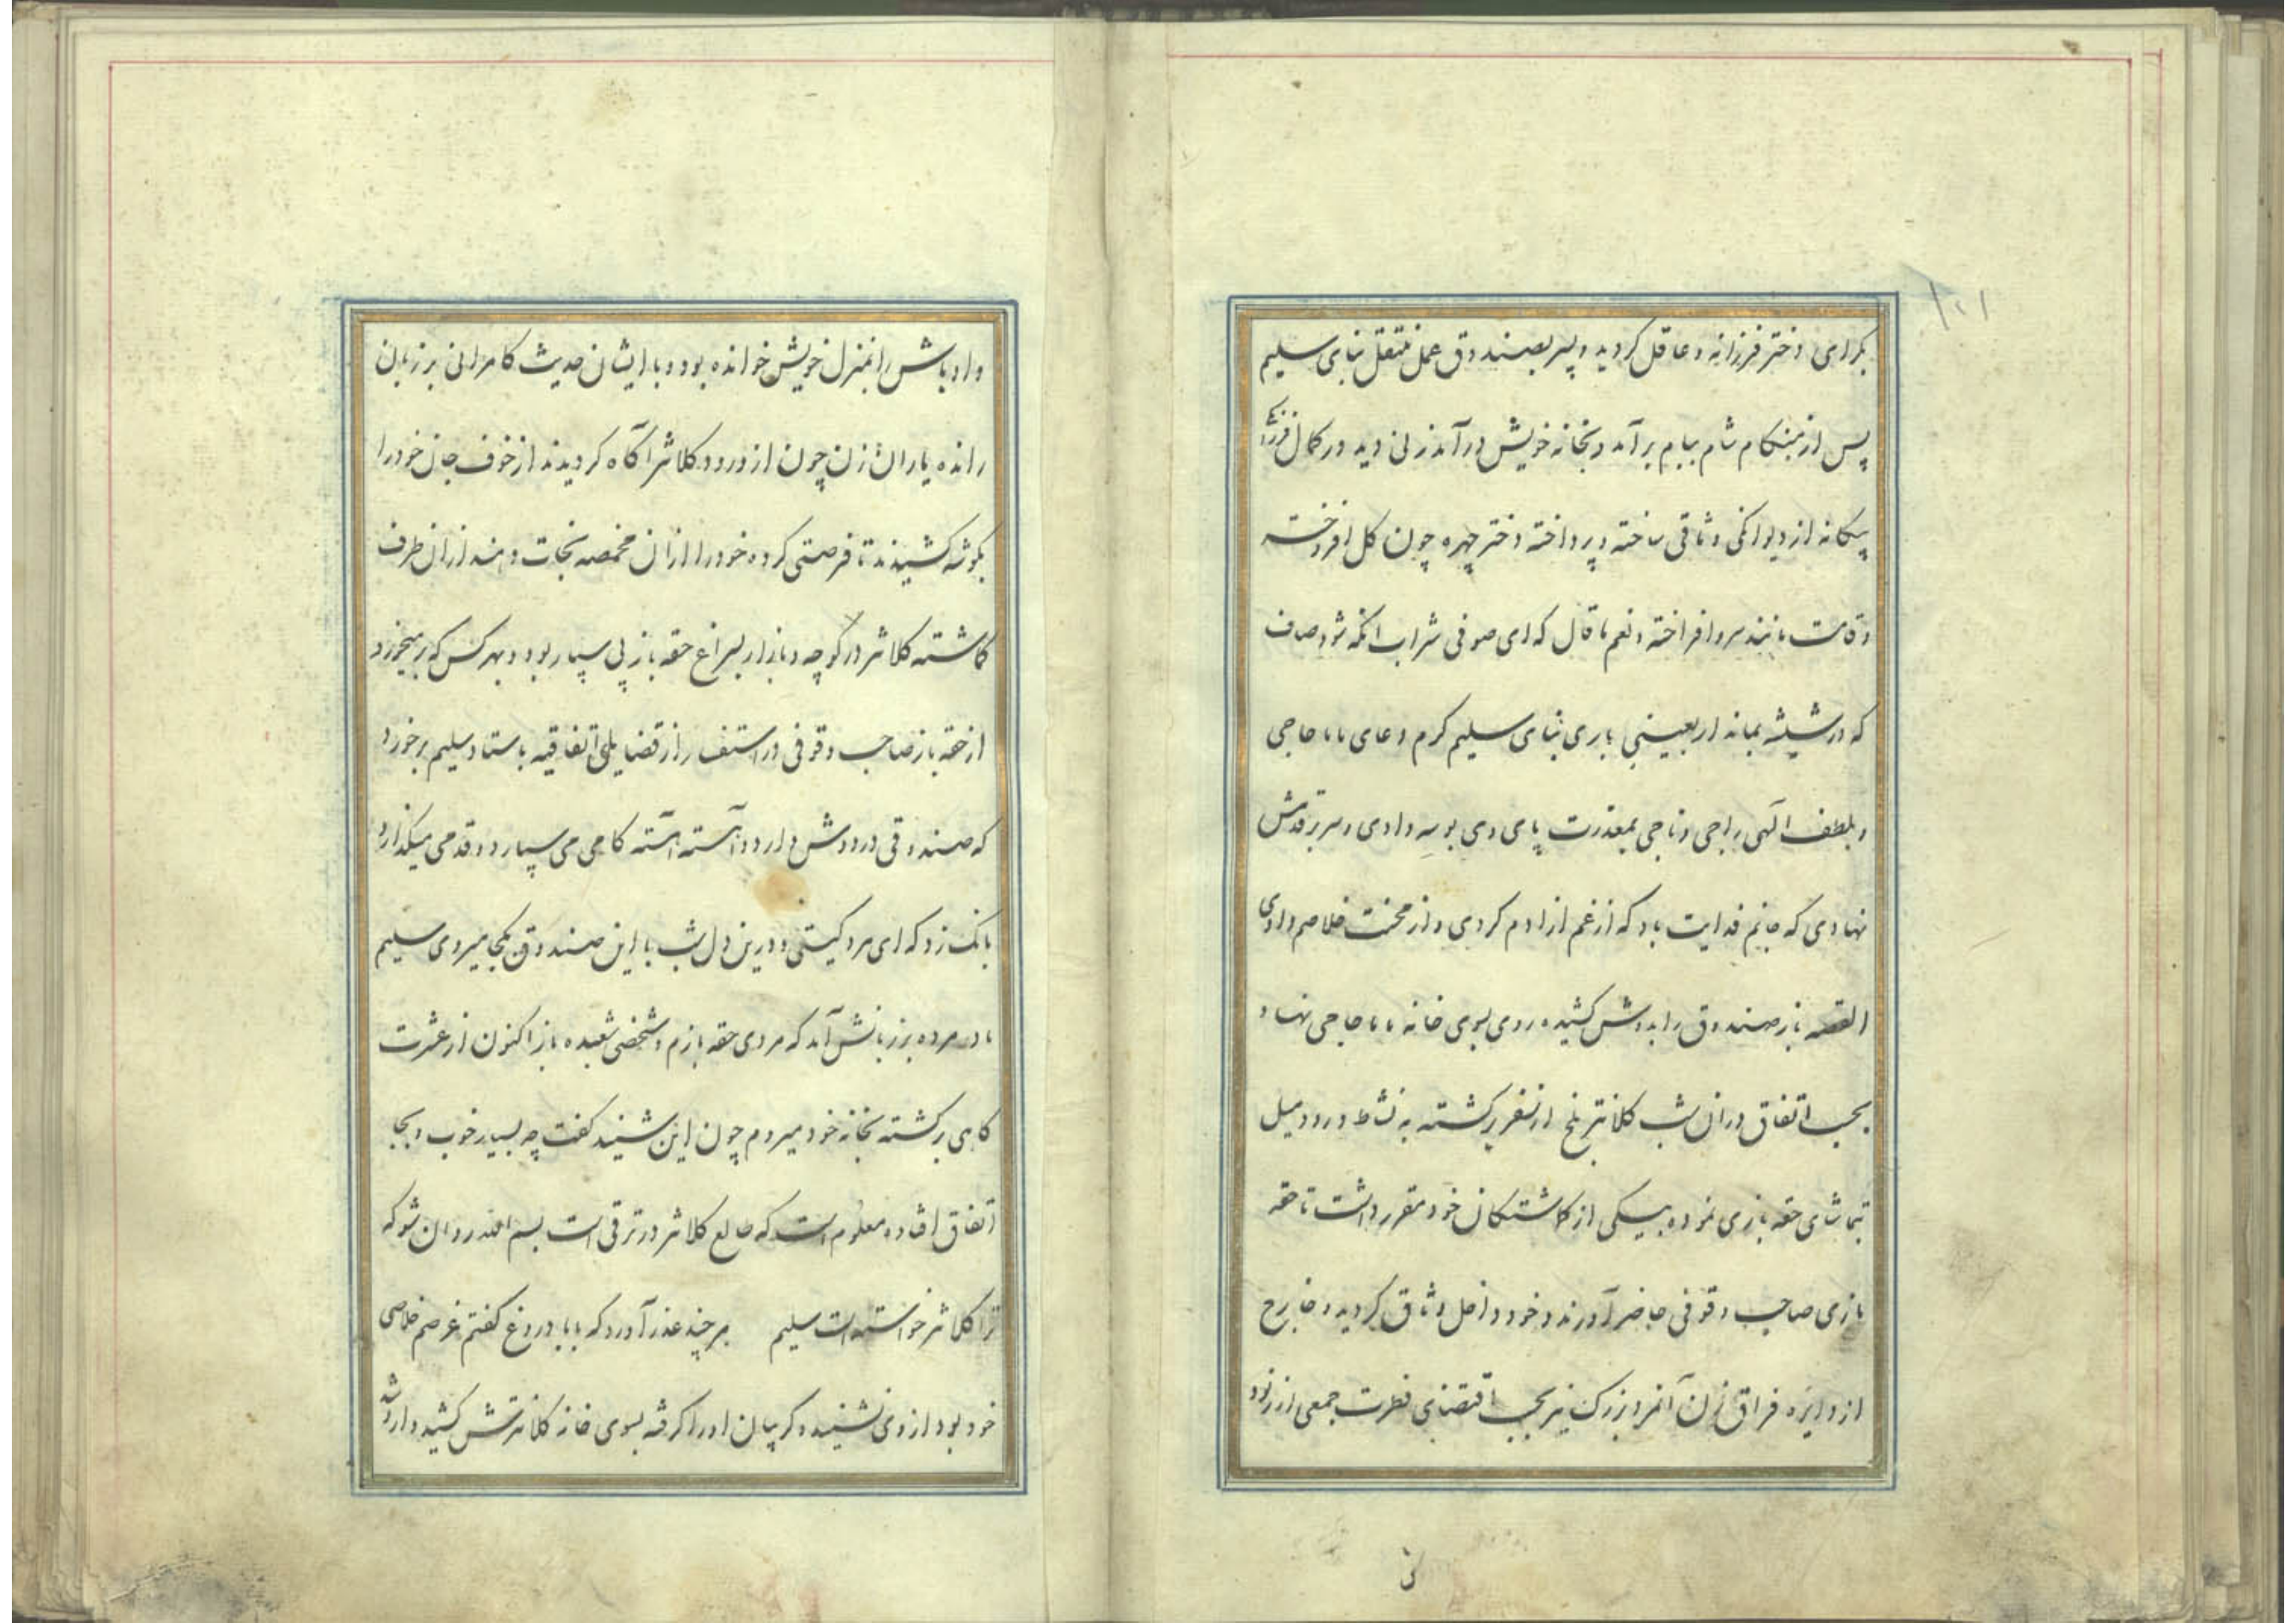 ۱۲۱
بکرای دختر فرزانه و عاقل کردید و پسر بصندوق عمل منتقل بنای سلیم
پس از هنکام شام ببام برآمد و بخانه خویش درآمد زنی دید در کمال فرزانگی
پیکانه از دیوانکی وثاقی ساخته و پرداخته دختر چهره چون کل افروخته
و قامت مانند سرو افراخته و نعم ما قال که ای صوفی شراب انکه شود صاف
که در شیشه بماند اربعینی باری بنای سلیم کرم دعای بابا حاجی
و بلطف الهی راجی و ناجی بمعذرت پای وی بوسه دادی و سر بر قدمش
نهادی که جانم فدایت باد که از غم ازادم کردی و از محنت خلاصم دادی
القصه باز صندوق را بدوش کشیده روی بسوی خانه بابا حاجی نهاد و
بحسب اتفاق دران شب کلانتر بلخ از سفر برکشته به نشاط درود میل
تماشای حقه بازی نموده بیکی از کماشتکان خود مقرر داشت تا حقه
بازی صاحب وقوفی حاضر آورند و خود داخل وثاق کردید و خارج
از دایره فراق زن آنمرد بزرک نیز بحسب اقتضای فطرت جمعی از رنود
و اوباش را بمنزل خویش خوانده بود و با ایشان حدیث کامرانی بر زبان
رانده یاران زن چون از ورود کلانتر آکاه کردیدند از خوف جان خود را
بکوشه کشیدند تا فرصتی کرده خود را ازان مخمصه نجات دهند ازان طرف
کماشته کلانتر در کوچه و بازار بسراغ حقه باز پی سپار بود و بهر کس که برمیخورد
از حقه باز صاحب وقوفی در استفسار از قضایای اتفاقیه باستاد سلیم برخورد
که صندوقی در دوش دارد و آهسته آهسته کامی می سپارد و قدمی میکذارد
بانک زد که ای مرد کیستی و درین دل شب با این صندوق بکجا میروی سلیم
مادر مرده بر زبانش آمد که مردی حقه بازم و شخصی شعبده باز اکنون از عشرت
کاهی برکشته بخانه خود میروم چون این شنید کفت چه بسیار خوب و بجا
اتفاق افتاده معلوم است که طالع کلانتر در ترقی است بسم الله روان شو که
ترا کلانتر خواسته است سلیم هر چند عذر آورد که بابا دروغ کفتم غرضم خلاصی
خود بود از وی نشنیده کریبان او را کرفته بسوی خانه کلانترش کشید وارد شد